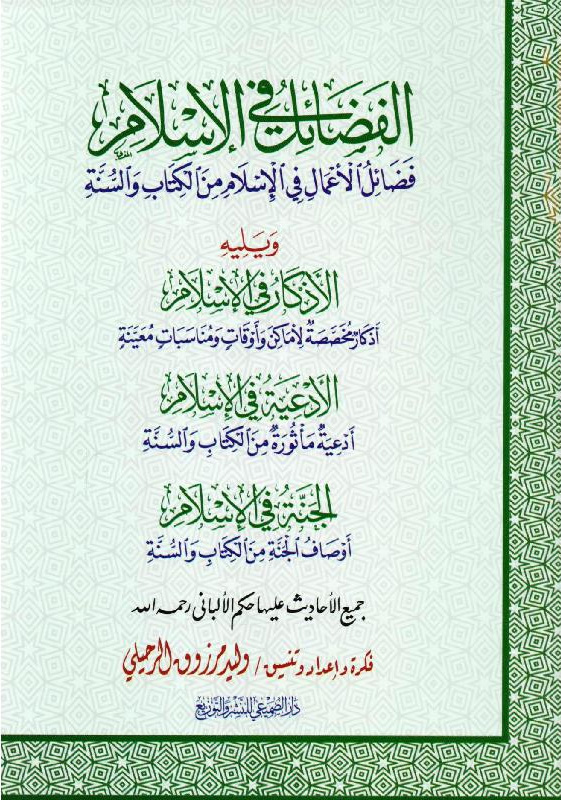 الفَضَائِل في الإِسْلَامِ
فَضَائِلُ الأَعْمَالِ فِي الإِسْلَامِ مِنَ الكِتَابِ وَالسُّنَّةِ
وَيَلِيهِ
الأَذْكَارُ فِي الإِسْلَامِ
أَذْكَارٌ مُخَصَّصَةٌ لِأَمَاكِنَ وَأَوْقَاتٍ وَمُنَاسَبَاتٍ مُعَيَّنَةٍ
الأَدْعِيَةُ فِي الإِسْلَامِ
أَدْعِيَةٌ مَأْثُورَةٌ مِنَ الكِتَابِ وَالسُّنَّةِ
الجَنَّةُ فِي الإِسْلَامِ
أَوْصَافُ الجَنَّةِ مِنَ الكِتَابِ وَالسُّنَّةِ
جميع الأحاديث عليها حكم الألباني رحمه الله
فكرة وإعداد وتنسيق / وليد مرزوق الرحيلي
دار الصميعي للنشر والتوزيع